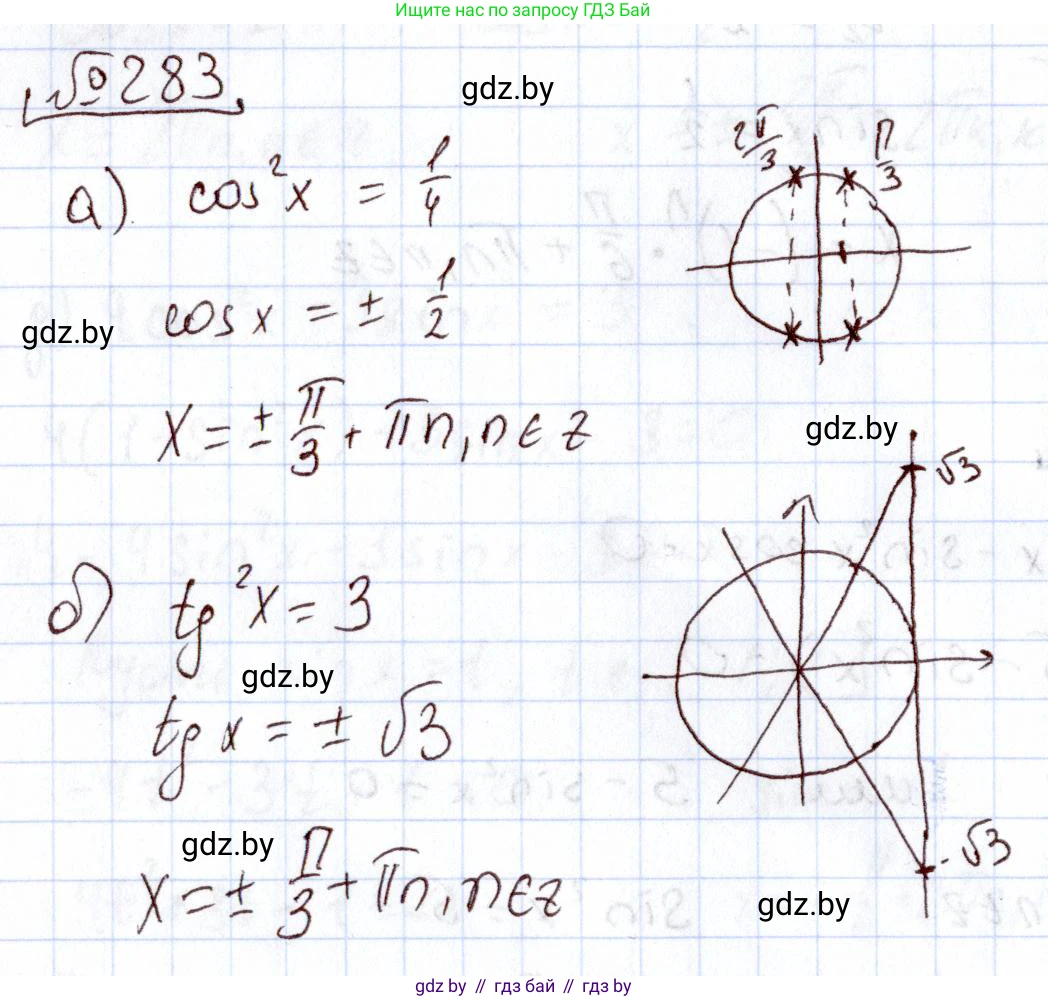 Ищите нас по запросу ГДЗ Бай
№283
gdz.by
а) cos²x = 1/4
2π/3 π/3
cos x = ± 1/2
gdz.by
x = ± π/3 + πn, n ∈ z
gdz.by
√3
б) tg²x = 3
gdz.by
tg x = ± √3
gdz.by
x = ± π/3 + πn, n ∈ z
-√3
gdz.by
gdz.by // гдз бай // gdz.by